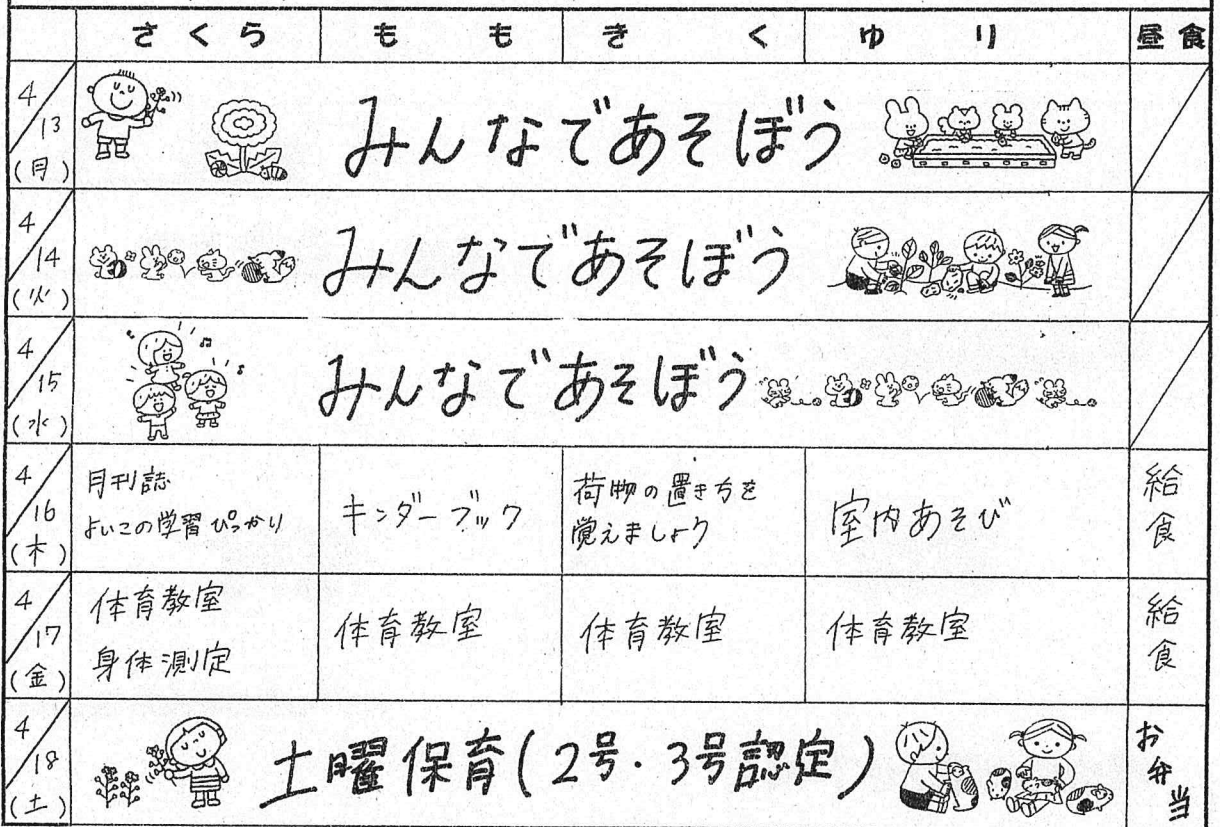 さくら もも きく ゆり 昼食
4/13(月) みんなであそぼう
4/14(火) みんなであそぼう
4/15(水) みんなであそぼう
4/16(木) 月刊誌
よいこの学習 ぴっかり
キンダーブック
荷物の置き方を
覚えましょう
室内あそび
給食
4/17(金) 体育教室
身体測定
体育教室
体育教室
体育教室
給食
4/18(土) 土曜保育(2号・3号認定) お弁当